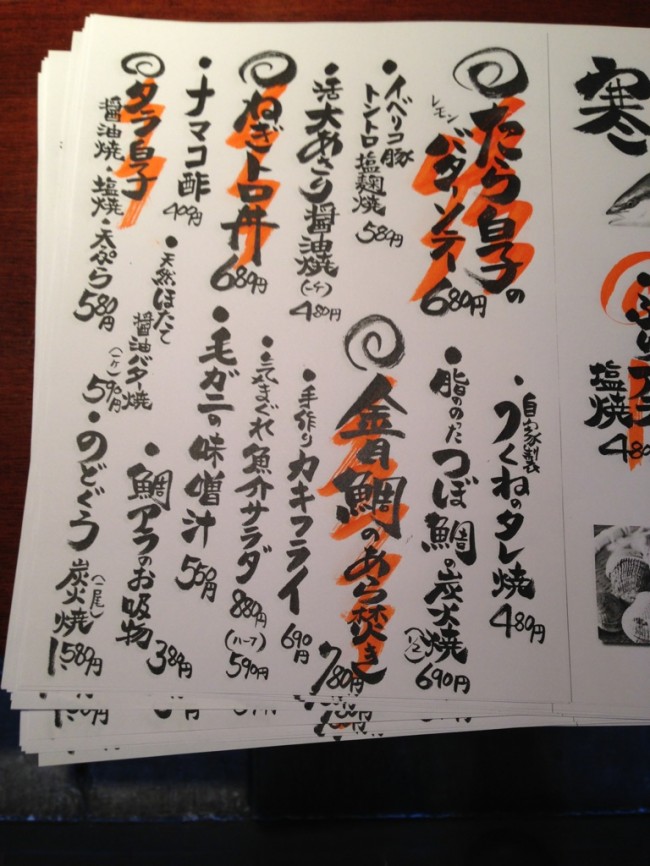 寒
塩焼
480
たら白子の
レモン
バターソテー
680円
・イベリコ豚
トントロ塩麹焼
580円
・活大あさり醤油焼
(一ケ)
480円
ねぎトロ丼
680円
・ナマコ酢
400円
タラ白子
醤油焼・塩焼・天ぷら
580円
・自家製
つくねのタレ焼
480円
・脂ののったつぼ鯛の炭火焼
(1/2)
690円
金目鯛のあら焚き
780円
・手作りカキフライ
690円
・気まぐれ魚介サラダ
880円
(ハーフ)
590円
・毛ガニの味噌汁
550円
・天然ほたて
醤油バター焼
(一ケ)
590円
・鯛アラのお吸物
380円
・のどぐろ
炭火焼
(一尾)
1,580円